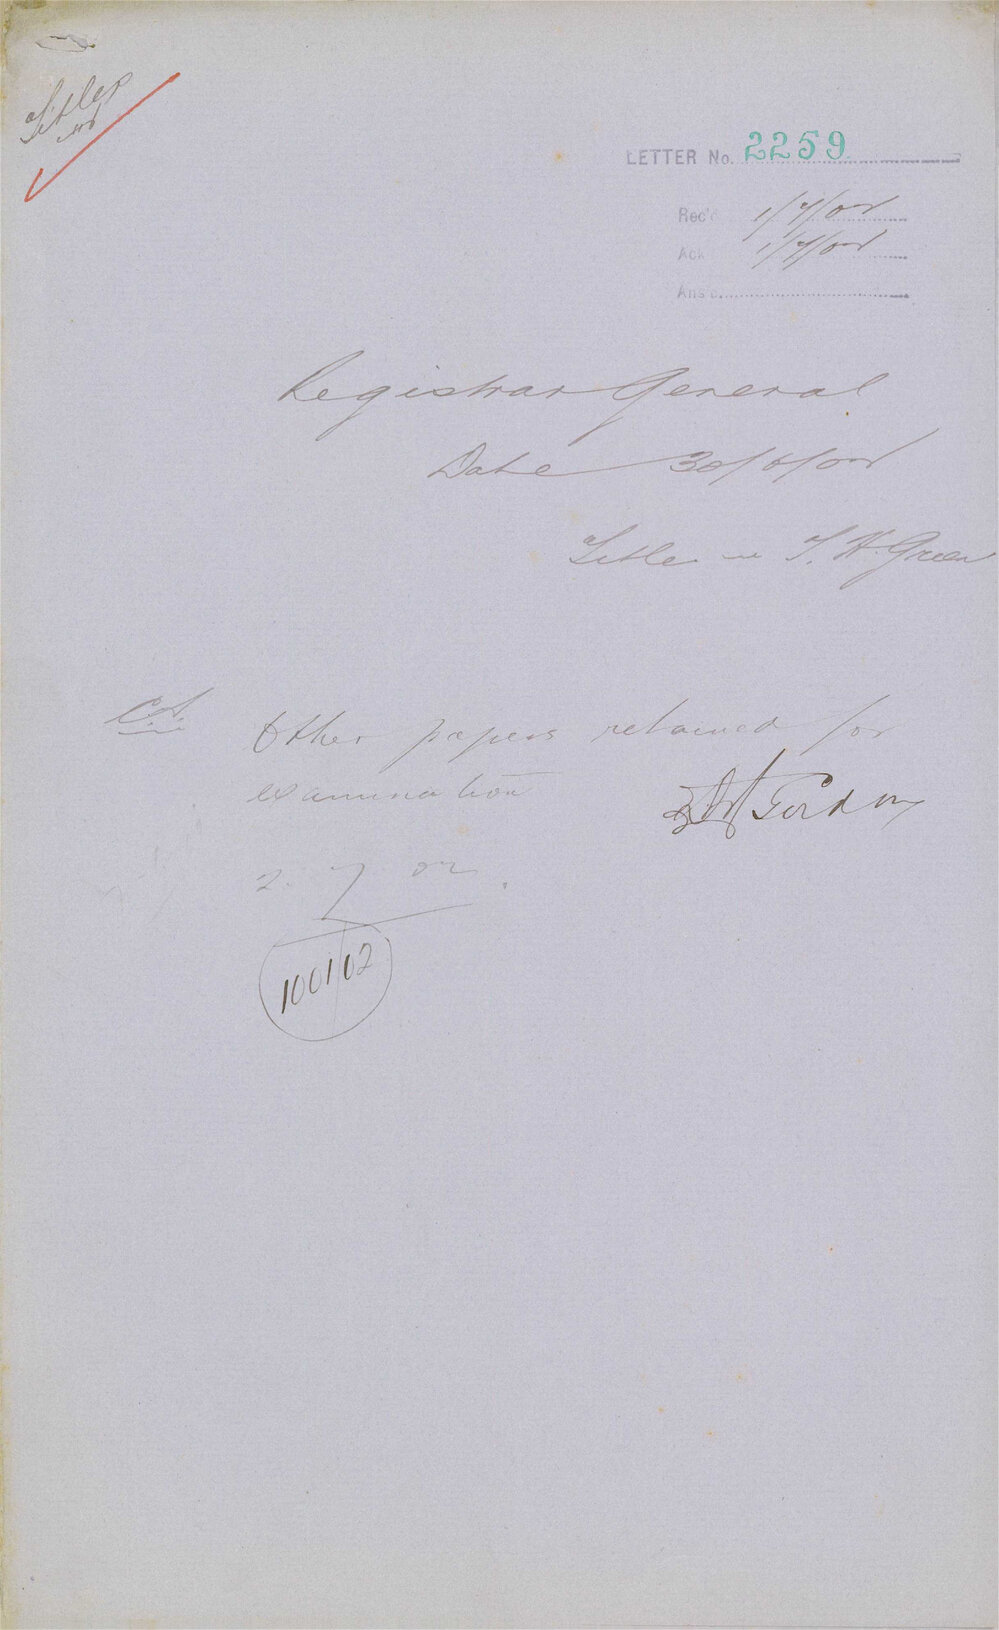 Titles
LETTER No. 2259
Rec'd 1/7/02
Ack 1/7/02
Ans'd
Registrar General
Date 30/6/02
Title — T. H. Green
C.S.
Other papers retained for
examination
Gordon
2. 7. 02.
1001/02